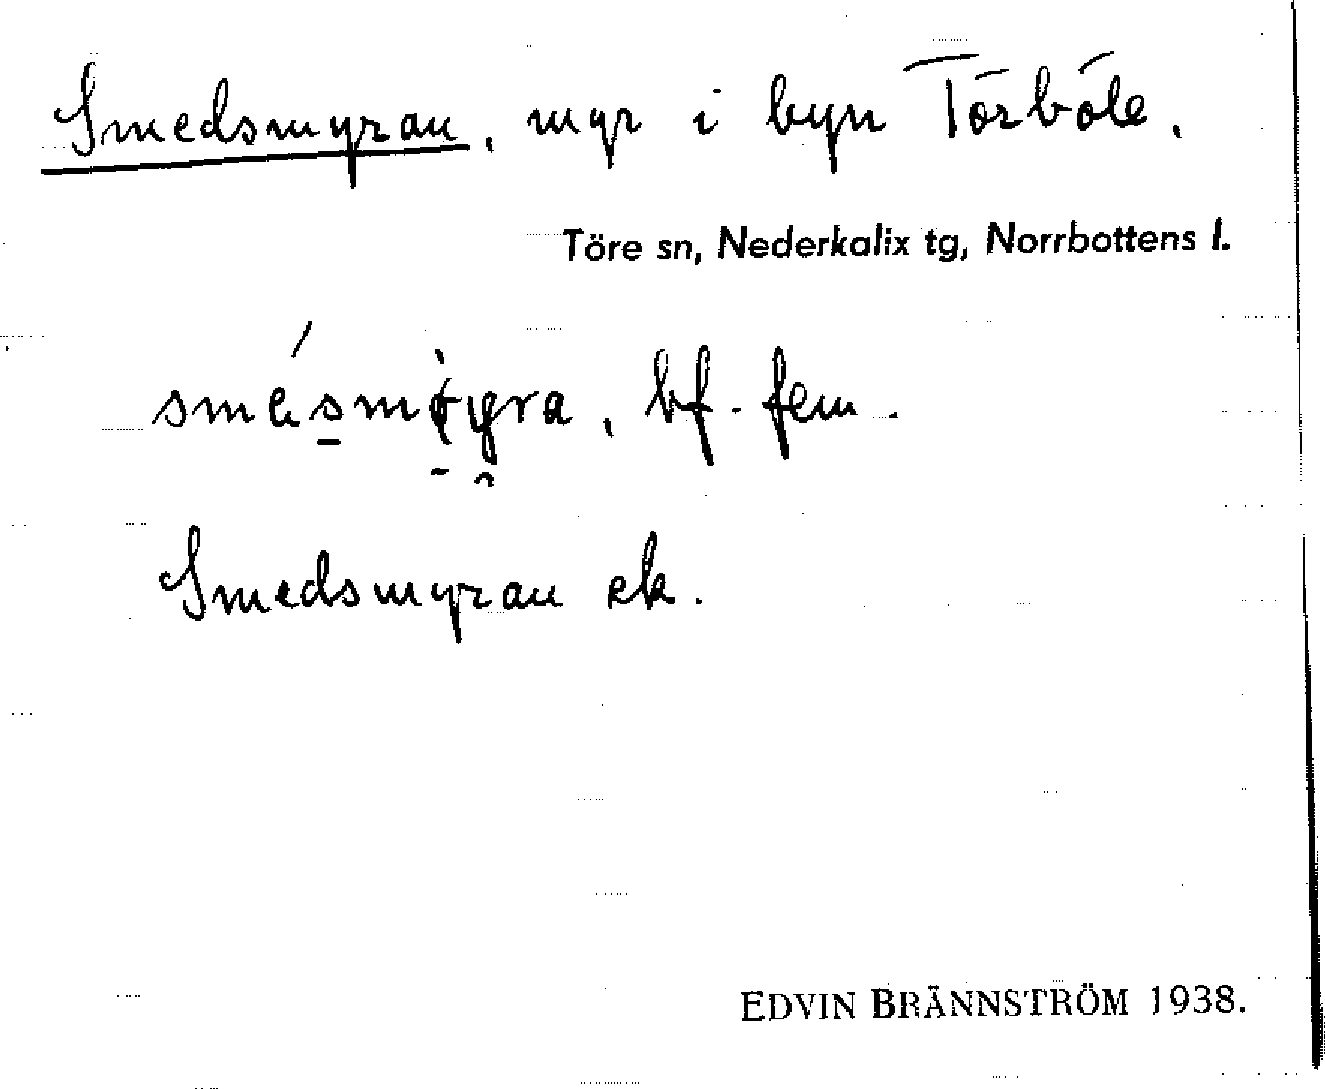 Smedsmyran, myr i byn Törböle.
Töre sn, Nederkalix tg, Norrbottens l.
bf. fem.
Smedsmyran ek.
EDVIN BRÄNNSTRÖM 1938.